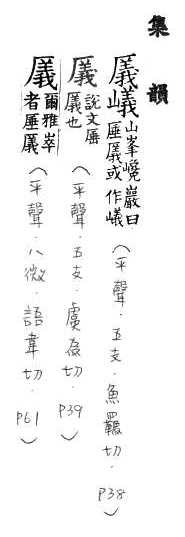 集韻
㕒嶬山峯巉巖曰㕒㕒或作嶬（平聲．五支．魚羈切．P38）
㕒說文㕒㕒也（平聲．五支．虞為切．P39）
㕒爾雅崒者㕒㕒（平聲．八微．語韋切．P61）